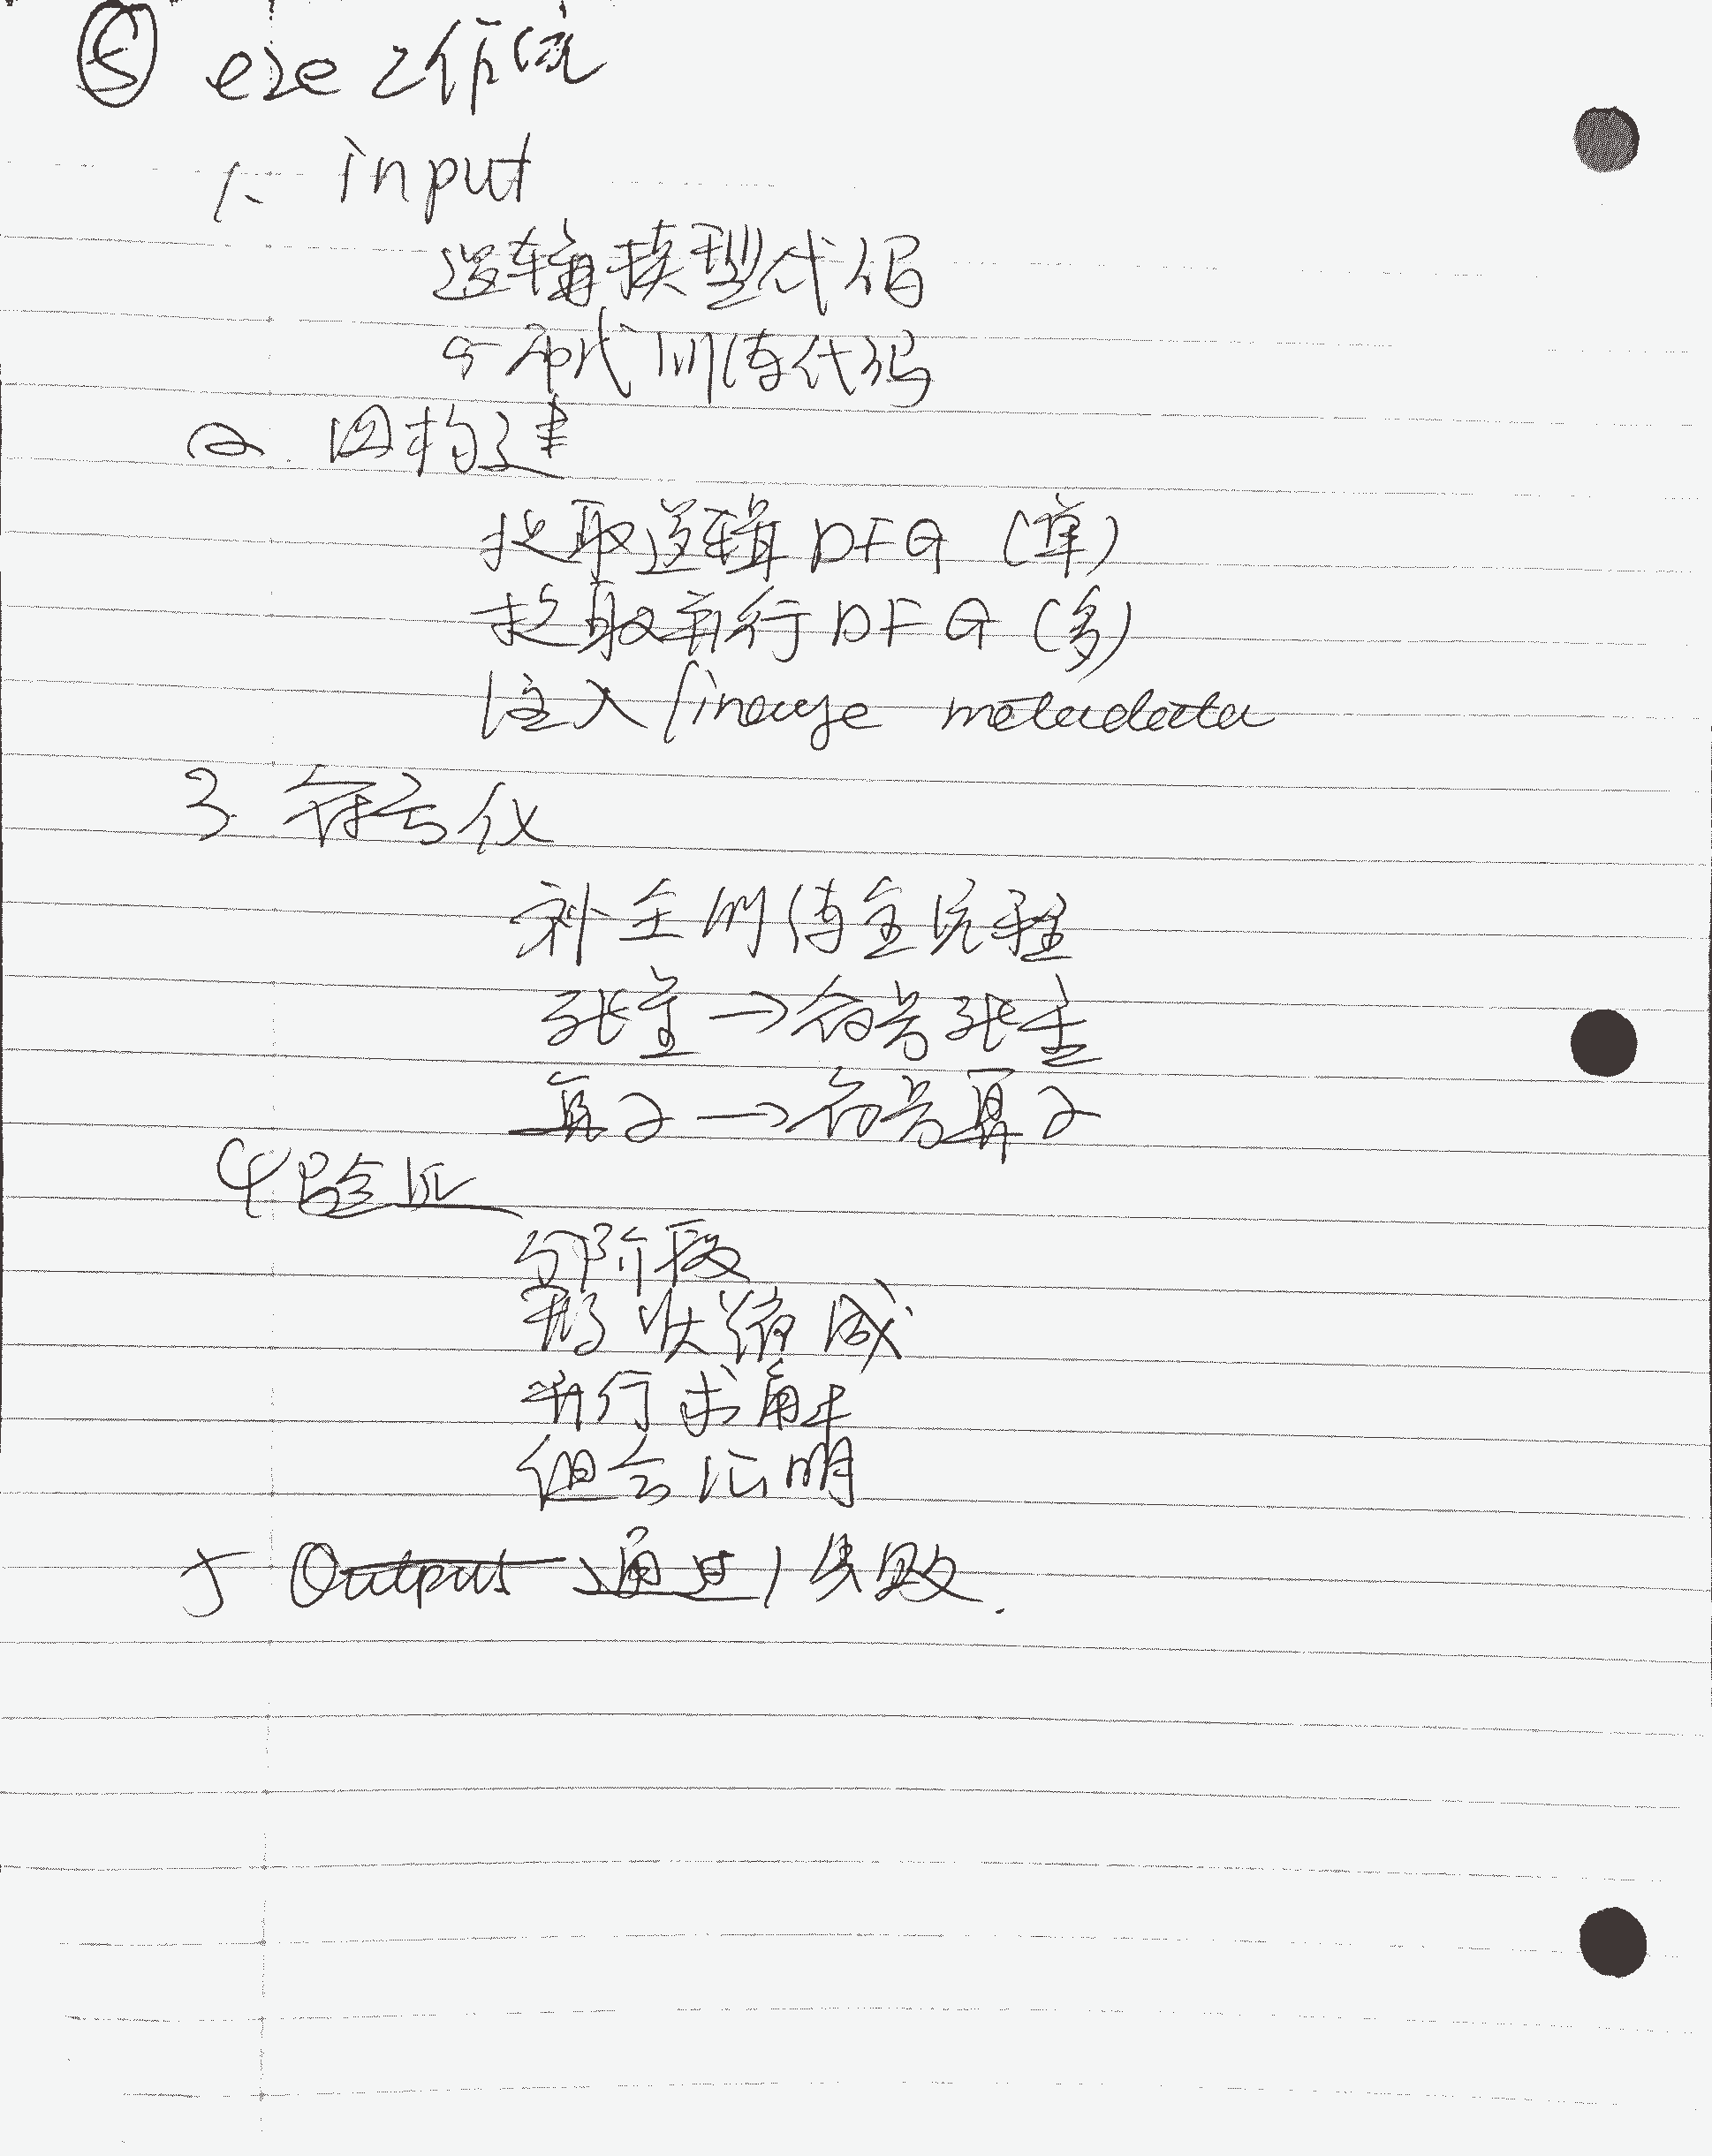 ⑤ e2e 工作流
1. input
逻辑模型代码
分布式训练代码
2. 图构建
提取逻辑 DFG (单)
提取并行 DFG (多)
注入 lineage metadata
3. 符号化
补全训练全流程
张量→符号张量
算子→符号算子
4 验证
分阶段
形状缩减
并行求解
组合证明
5 Output 通过/失败.